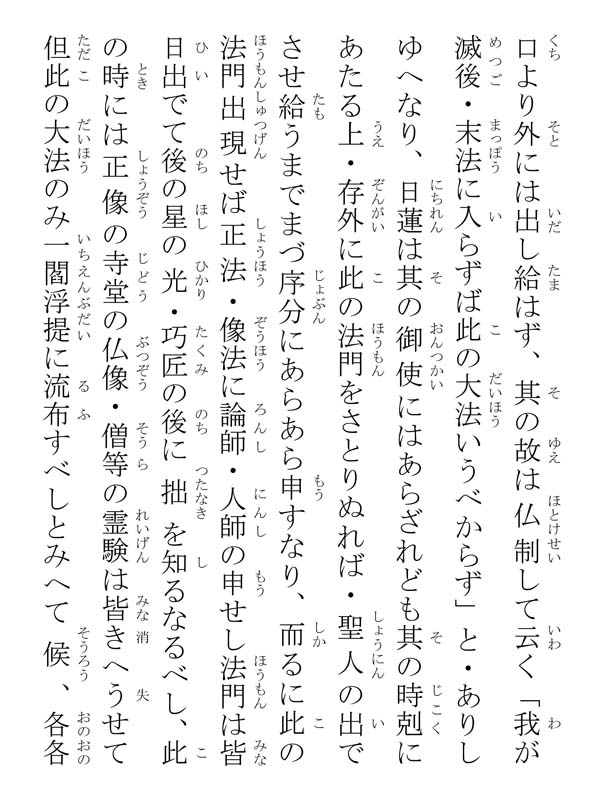 口より外には出し給はず、其の故は仏制して云く「我が
滅後・末法に入らずば此の大法いうべからず」と・ありし
ゆへなり、日蓮は其の御使にはあらざれども其の時剋に
あたる上・存外に此の法門をさとりぬれば・聖人の出で
させ給うまでまづ序分にあらあら申すなり、而るに此の
法門出現せば正法・像法に論師・人師の申せし法門は皆
日出でて後の星の光・巧匠の後に拙を知るなるべし、此
の時には正像の寺堂の仏像・僧等の霊験は皆きへうせて
但此の大法のみ一閻浮提に流布すべしとみへて候、各各